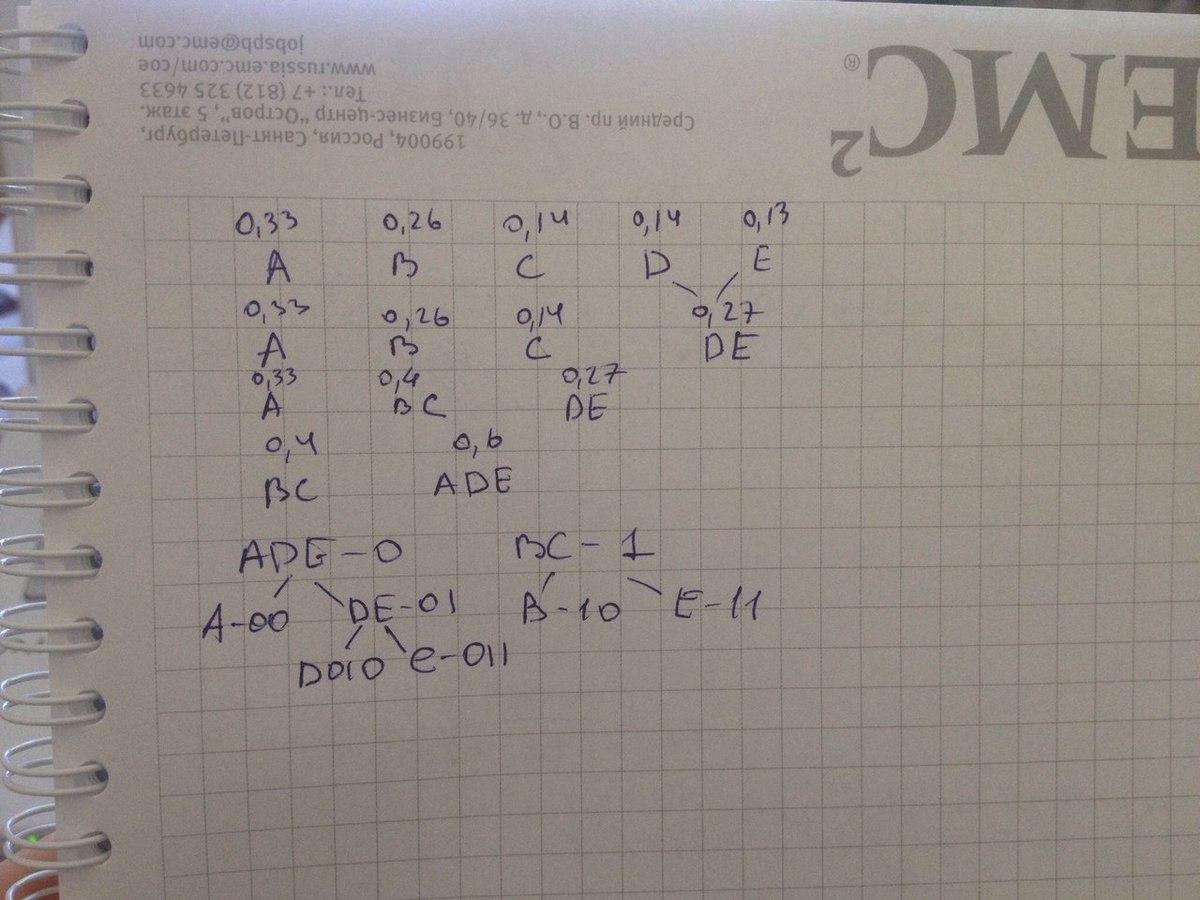 EMC²
®
199004, Россия, Санкт-Петербург,
Средний пр. В.О., д. 36/40, Бизнес-центр "Остров", 5 этаж.
Тел.: +7 (812) 325 4633
www.russia.emc.com/coe
jobspb@emc.com
0,33 0,26 0,14 0,14 0,13
A B C D E
0,33 0,26 0,14 0,27
A B C DE
0,33 0,4 0,27
A BC DE
0,4 0,6
BC ADE
ADE-0 BC-1
A-00 DE-01 B-10 E-11
D010 e-011